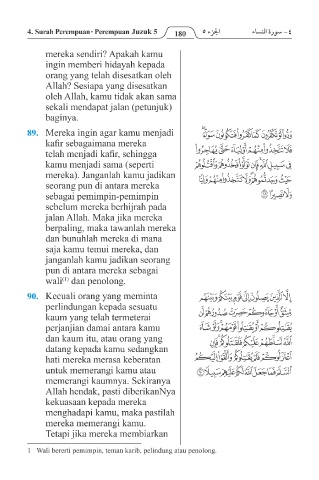 4. Surah Perempuan· Perempuan Juzuk 5 180 الجزء ٥ ٤ – سورة النساء
mereka sendiri? Apakah kamu
ingin memberi hidayah kepada
orang yang telah disesatkan oleh
Allah? Sesiapa yang disesatkan
oleh Allah, kamu tidak akan sama
sekali mendapat jalan (petunjuk)
baginya.
89. Mereka ingin agar kamu menjadi
kafir sebagaimana mereka
telah menjadi kafir, sehingga
kamu menjadi sama (seperti
mereka). Janganlah kamu jadikan
seorang pun di antara mereka
sebagai pemimpin-pemimpin
sebelum mereka berhijrah pada
jalan Allah. Maka jika mereka
berpaling, maka tawanlah mereka
dan bunuhlah mereka di mana
saja kamu temui mereka, dan
janganlah kamu jadikan seorang
pun di antara mereka sebagai
wali(1) dan penolong.
وَدُّوا۟ لَوْ تَكْفُرُونَ كَمَا كَفَرُوا۟ فَتَكُونُونَ سَوَآءً
فَلَا تَتَّخِذُوا۟ مِنْهُمْ أَوْلِيَآءَ حَتَّىٰ يُهَاجِرُوا۟
فِى سَبِيلِ ٱللَّهِ فَإِن تَوَلَّوْا۟ فَخُذُوهُمْ وَٱقْتُلُوهُمْ
حَيْثُ وَجَدتُّمُوهُمْ وَلَا تَتَّخِذُوا۟ مِنْهُمْ وَلِيًّا
وَلَا نَصِيرًا ٨٩
90. Kecuali orang yang meminta
perlindungan kepada sesuatu
kaum yang telah termeterai
perjanjian damai antara kamu
dan kaum itu, atau orang yang
datang kepada kamu sedangkan
hati mereka merasa keberatan
untuk memerangi kamu atau
memerangi kaumnya. Sekiranya
Allah hendak, pasti diberikanNya
kekuasaan kepada mereka
menghadapi kamu, maka pastilah
mereka memerangi kamu.
Tetapi jika mereka membiarkan
إِلَّا ٱلَّذِينَ يَصِلُونَ إِلَىٰ قَوْمٍۭ بَيْنَكُمْ وَبَيْنَهُم
مِّيثَٰقٌ أَوْ جَآءُوكُمْ حَصِرَتْ صُدُورُهُمْ أَن
يُقَٰتِلُوكُمْ أَوْ يُقَٰتِلُوا۟ قَوْمَهُمْ وَلَوْ شَآءَ
ٱللَّهُ لَسَلَّطَهُمْ عَلَيْكُمْ فَلَقَٰتَلُوكُمْ فَإِنِ
ٱعْتَزَلُوكُمْ فَلَمْ يُقَٰتِلُوكُمْ وَأَلْقَوْا۟ إِلَيْكُمُ
ٱلسَّلَمَ فَمَا جَعَلَ ٱللَّهُ لَكُمْ عَلَيْهِمْ سَبِيلًا ٩٠
1 Wali bererti pemimpin, teman karib, pelindung atau penolong.